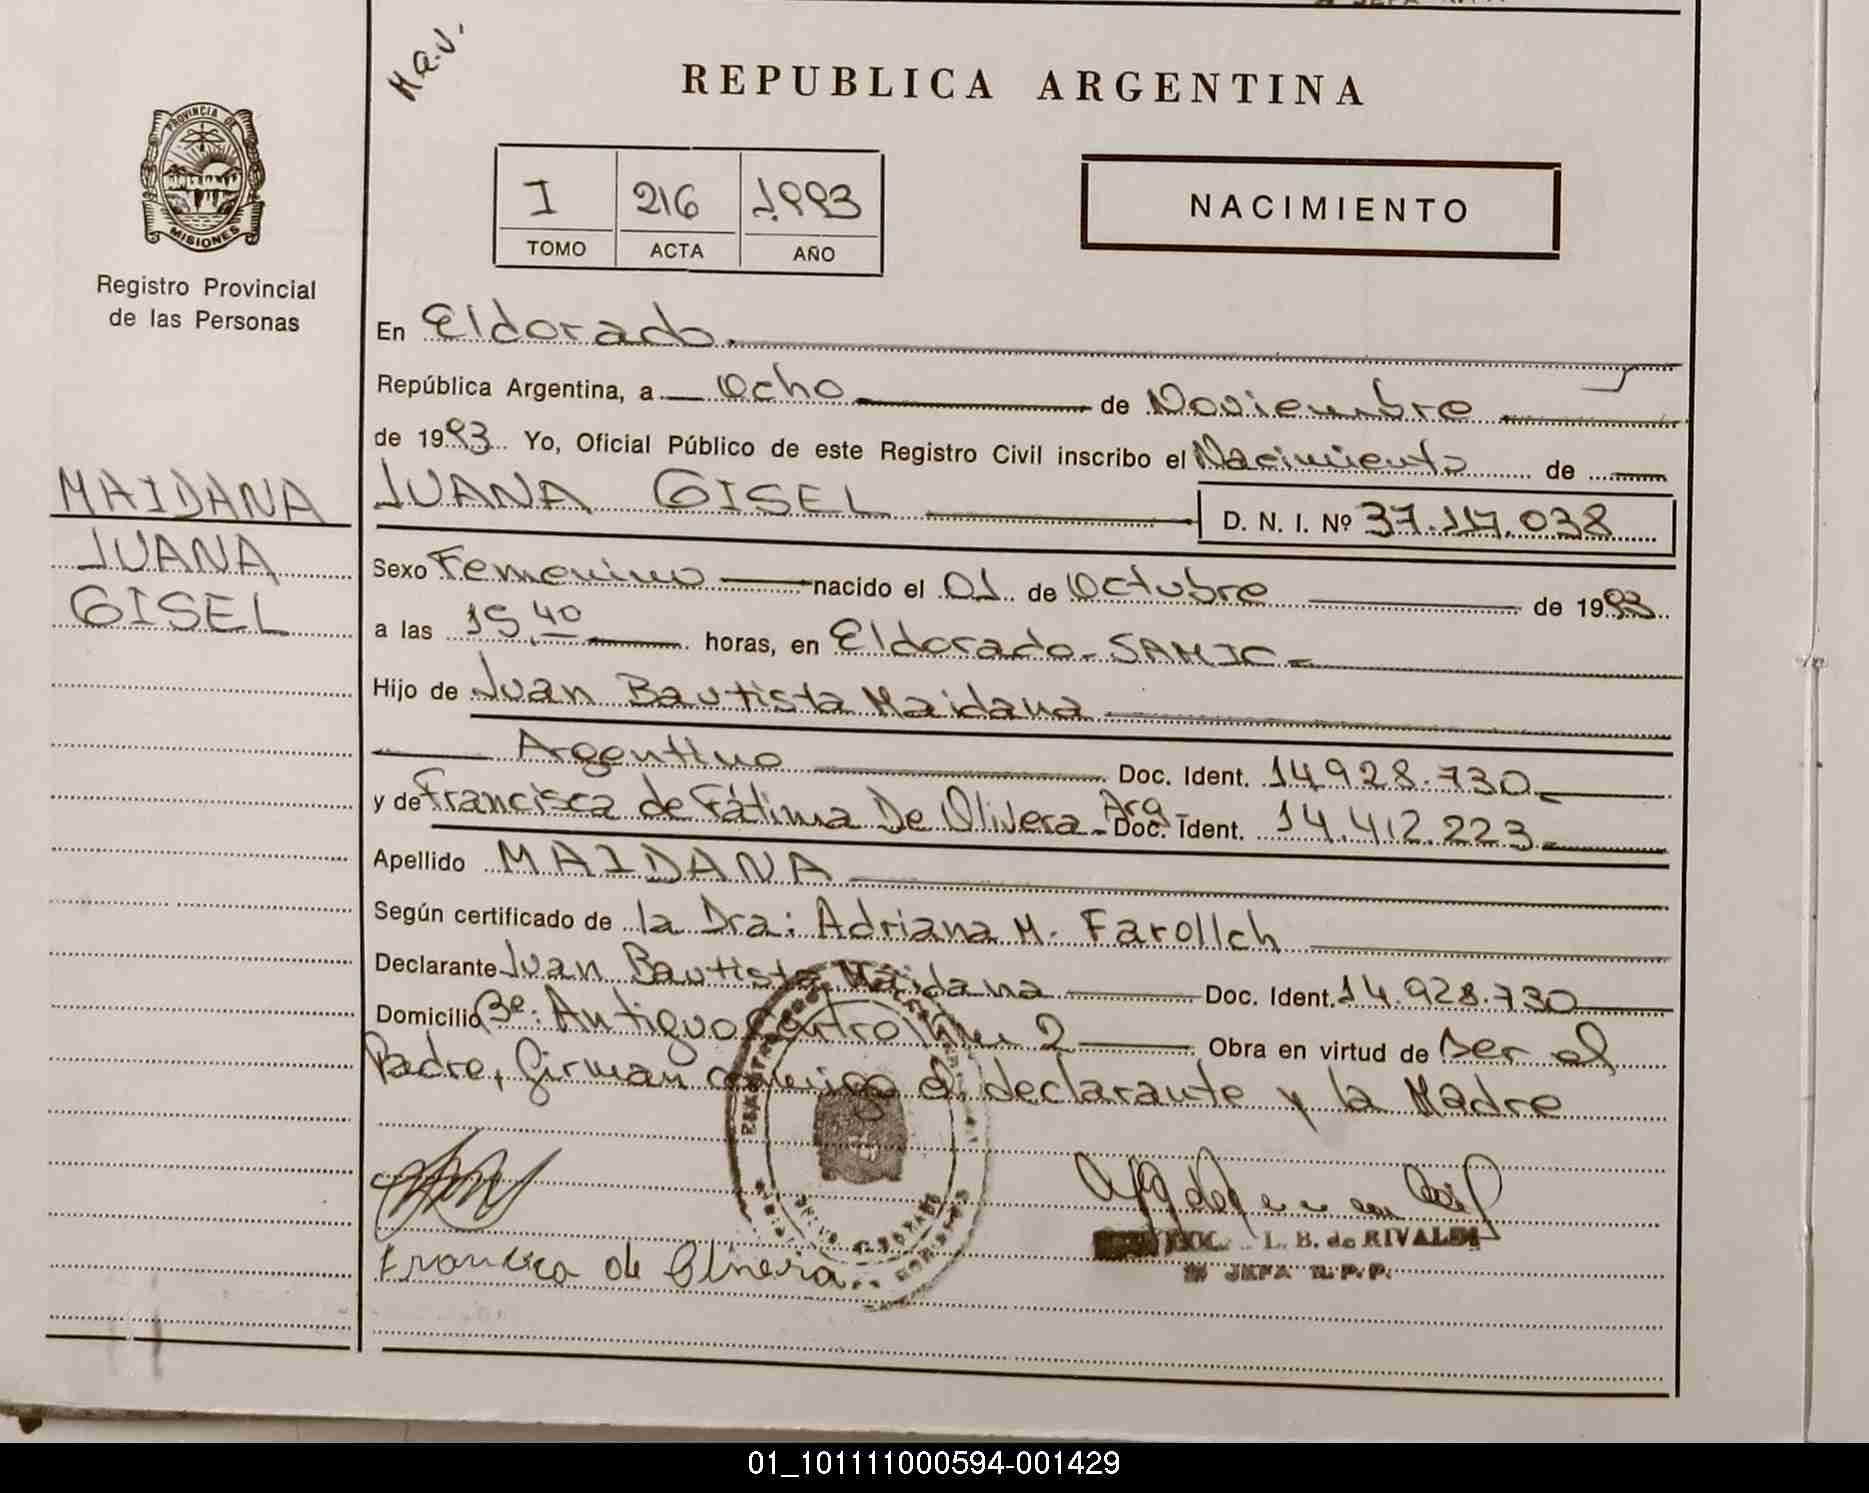 H a.v.
REPUBLICA ARGENTINA
PROVINCIA DE
MISIONES
Registro Provincial
de las Personas
I 216 1993
TOMO ACTA AÑO
NACIMIENTO
En Eldorado.
República Argentina, a ocho de Noviembre
de 1993 Yo, Oficial Público de este Registro Civil inscribo el Nacimiento de
MAIDANA
JUANA
GISEL
JUANA GISEL D. N. I. Nº 37.117.038
Sexo Femenino nacido el 01 de Octubre de 1993
a las 15,40 horas, en Eldorado - SAMIC -
Hijo de Juan Bautista Maidana
Argentino Doc. Ident. 14.928.730
y de Francisca de Fátima De Olivera - Arg - Doc. Ident. 14.412.223
Apellido MAIDANA
Según certificado de la Dra: Adriana M. Farollch
Declarante Juan Bautista Maidana Doc. Ident. 14.928.730
Domicilio Bº: Antiguo Control Km 2 Obra en virtud de ser el
Padre, firman conmigo el declarante y la Madre
Francisca de Olivera
L. B. de RIVALDI
JEFA R.P.P.
01_101111000594-001429